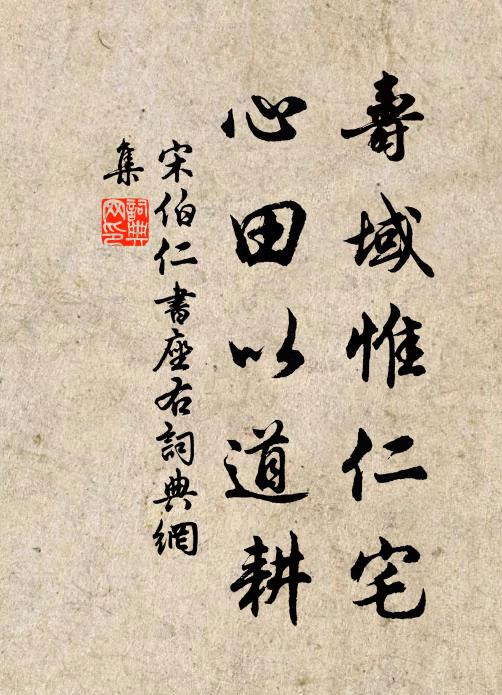 壽域惟仁宅
心田以道耕
宋伯仁書座右詞典網
集
詞典
网印